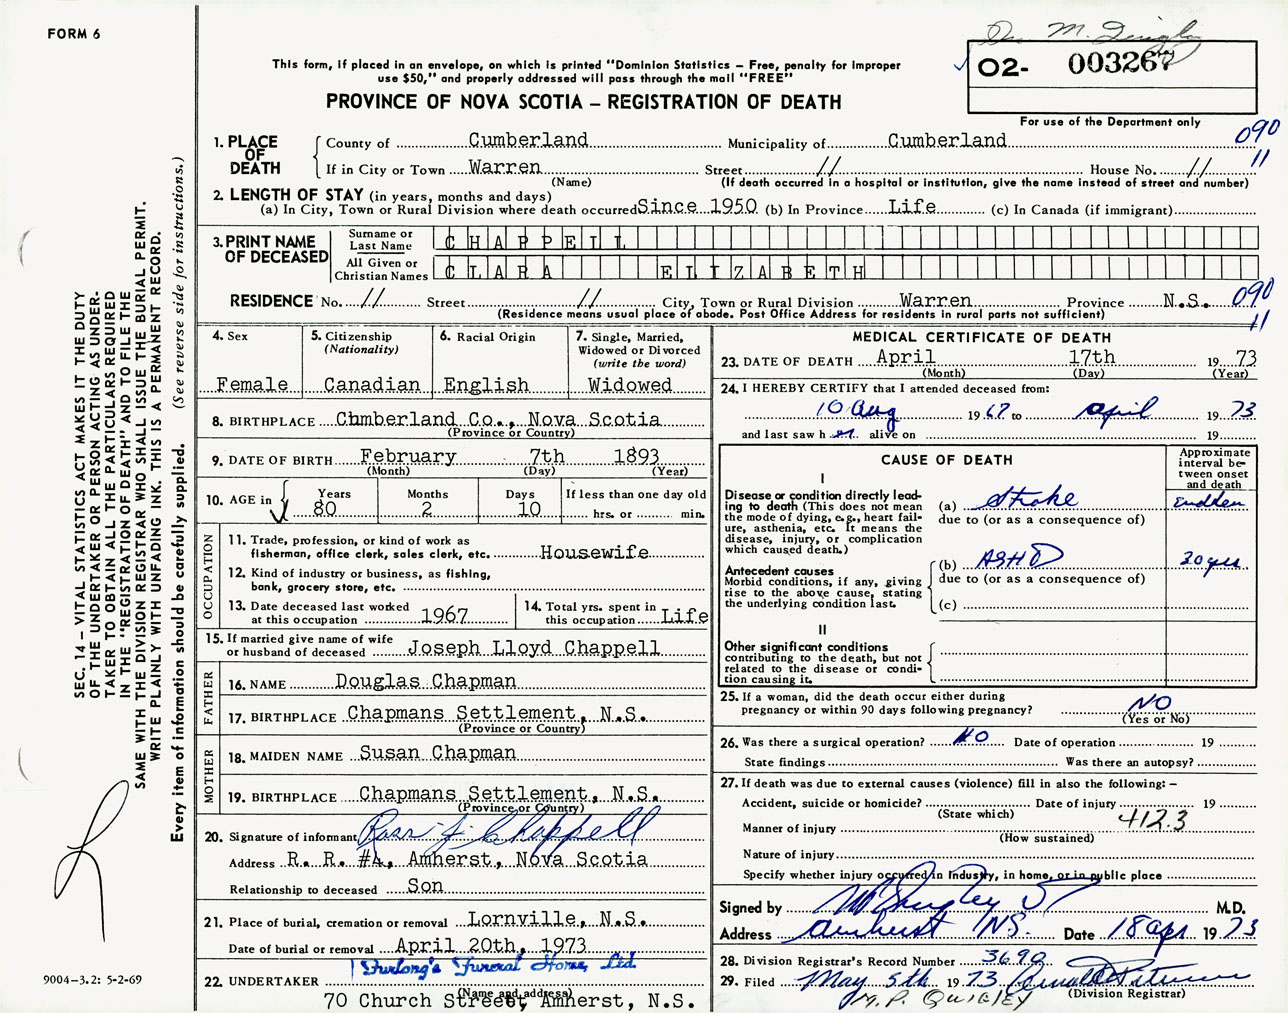 FORM 6
Dr. M.
This form, if placed in an envelope, on which is printed "Dominion Statistics – Free, penalty for improper
use $50," and properly addressed will pass through the mail "FREE"
PROVINCE OF NOVA SCOTIA – REGISTRATION OF DEATH
O2- 003267
For use of the Department only
1. PLACE OF DEATH
County of Cumberland Municipality of Cumberland 090
If in City or Town Warren Street // House No. // 11
(Name) (If death occurred in a hospital or institution, give the name instead of street and number)
2. LENGTH OF STAY (in years, months and days)
(a) In City, Town or Rural Division where death occurred Since 1950 (b) In Province Life (c) In Canada (if immigrant)
3. PRINT NAME OF DECEASED
Surname or Last Name CHAPPELL
All Given or Christian Names CLARA ELIZABETH
RESIDENCE No. // Street // City, Town or Rural Division Warren Province N.S. 090
(Residence means usual place of abode. Post Office Address for residents in rural parts not sufficient) 11
4. Sex
Female
5. Citizenship
(Nationality)
Canadian
6. Racial Origin
English
7. Single, Married,
Widowed or Divorced
(write the word)
Widowed
8. BIRTHPLACE Cumberland Co., Nova Scotia
(Province or Country)
9. DATE OF BIRTH February 7th 1893
(Month) (Day) (Year)
10. AGE in
Years Months Days If less than one day old
80 2 10 hrs. or min.
OCCUPATION
11. Trade, profession, or kind of work as
fisherman, office clerk, sales clerk, etc. Housewife
12. Kind of industry or business, as fishing,
bank, grocery store, etc.
13. Date deceased last worked
at this occupation 1967
14. Total yrs. spent in
this occupation Life
15. If married give name of wife
or husband of deceased Joseph Lloyd Chappell
FATHER
16. NAME Douglas Chapman
17. BIRTHPLACE Chapmans Settlement, N.S.
(Province or Country)
MOTHER
18. MAIDEN NAME Susan Chapman
19. BIRTHPLACE Chapmans Settlement, N.S.
(Province or Country)
20. Signature of informant Ross J Chappell
Address R. R. #4, Amherst, Nova Scotia
Relationship to deceased Son
21. Place of burial, cremation or removal Lornville, N.S.
Date of burial or removal April 20th, 1973
22. UNDERTAKER Furlong's Funeral Home, Ltd.
(Name and address)
70 Church Street, Amherst, N.S.
MEDICAL CERTIFICATE OF DEATH
23. DATE OF DEATH April 17th 1973
(Month) (Day) (Year)
24. I HEREBY CERTIFY that I attended deceased from:
10 Aug 1967 to April 1973
and last saw h er alive on 19
CAUSE OF DEATH
Approximate
interval be-
tween onset
and death
I
Disease or condition directly lead-
ing to death (This does not mean
the mode of dying, e.g., heart fail-
ure, asthenia, etc. It means the
disease, injury, or complication
which caused death.)
(a) Stroke sudden
due to (or as a consequence of)
Antecedent causes
Morbid conditions, if any, giving
rise to the above cause, stating
the underlying condition last.
(b) ASHD 20 yrs
due to (or as a consequence of)
(c)
II
Other significant conditions
contributing to the death, but not
related to the disease or condi-
tion causing it.
25. If a woman, did the death occur either during
pregnancy or within 90 days following pregnancy? NO
(Yes or No)
26. Was there a surgical operation? NO Date of operation 19
State findings Was there an autopsy?
27. If death was due to external causes (violence) fill in also the following: –
Accident, suicide or homicide? Date of injury 19
(State which) 412.3
Manner of injury
(How sustained)
Nature of injury
Specify whether injury occurred in Industry, in home, or in public place
Signed by M.D.
Address Amherst NS. Date 18 Apr 1973
28. Division Registrar's Record Number 3690
29. Filed May 5th 1973
(Division Registrar)
M. P. QUIGLEY
SEC. 14 – VITAL STATISTICS ACT MAKES IT THE DUTY
OF THE UNDERTAKER OR PERSON ACTING AS UNDER-
TAKER TO OBTAIN ALL THE PARTICULARS REQUIRED
IN THE "REGISTRATION OF DEATH" AND TO FILE THE
SAME WITH THE DIVISION REGISTRAR WHO SHALL ISSUE THE BURIAL PERMIT.
WRITE PLAINLY WITH UNFADING INK. THIS IS A PERMANENT RECORD.
Every item of information should be carefully supplied. (See reverse side for instructions.)
9004-3.2: 5-2-69